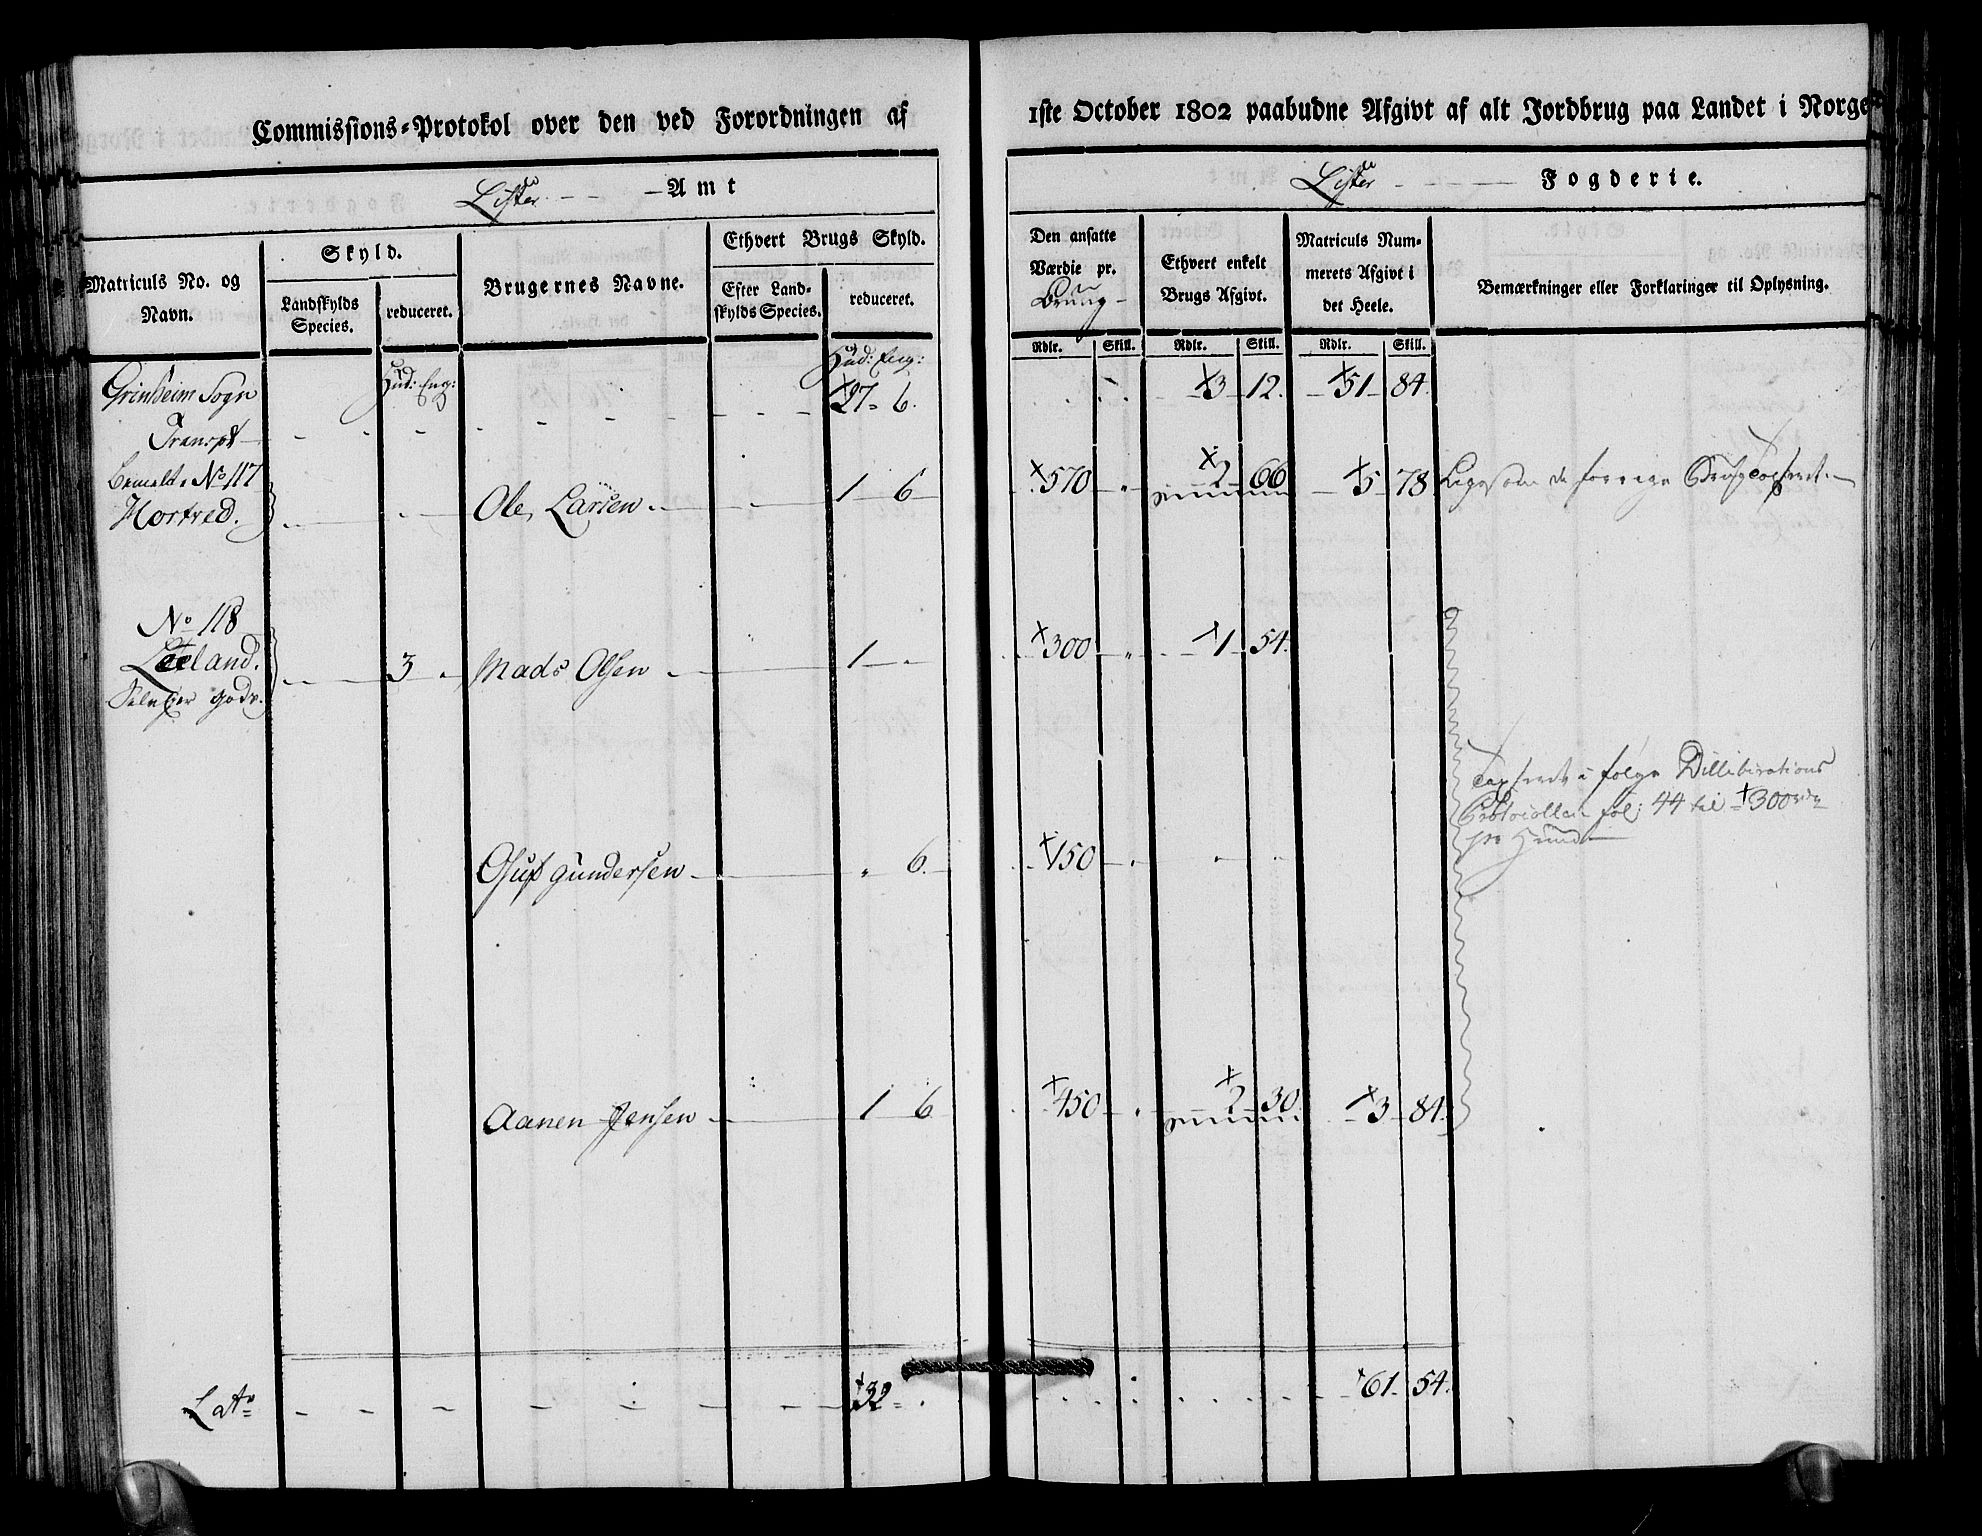 Commissions-Protokol over den ved Forordningen af 1ste October 1802 paabudne Afgivt af alt Jordbrug paa Landet i Norge
Lister Amt
Lister Fogderie.
Matriculs No. og Navn.
Skyld.
Landskylds Species.
reduceret.
Brugernes Navne.
Ethvert Brugs Skyld.
Efter Landskylds Species.
reduceret.
Den ansatte Værdie pr. Brug
Ethvert enkelt Brugs Afgivt.
Matriculs Nummerets Afgivt i det Heele.
Bemærkninger eller Forklaringer til Oplysning.
Rdlr. Skill. Rdlr. Skill. Rdlr. Skill.
Hud: Eng: Hud: Eng:
Grindheim Sogn
Transpt 27 6. 3 12. 51 84.
bemelte No 117
Hortved. Ole Larsen 1 6 570 2 66 5 78 Ligesom de forrige Brug taxeret.
No 118
Leland. 3 Mads Olsen 1 300 1 54.
Selveier gods.
Taxeret i følge Dilliberations
Protocollen fol: 44 til 300 rdr
pr Huud
Oluf Gundersen 6. 150
Aanen Jensen 1 6 450 2 30. 3 84.
Lats 32 61 54.